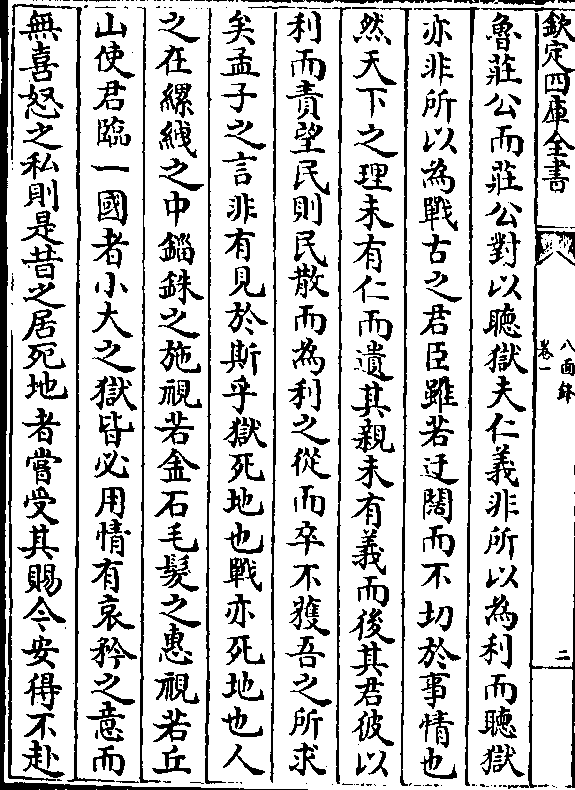 欽定四庫全書
八面鋒
卷一
二
魯莊公而莊公對以聽獄夫仁義非所以為利而聽獄
亦非所以為戰古之君臣雖若迂闊而不切於事情也
然天下之理未有仁而遺其親未有義而後其君彼以
利而責望民則民散而為利之從而卒不獲吾之所求
矣孟子之言非有見於斯乎獄死地也戰亦死地也人
之在縲絏之中錙銖之施視若金石毛髮之惠視若丘
山使君臨一國者小大之獄皆必用情有哀矜之意而
無喜怒之私則是昔之居死地者嘗受其賜今安得不赴